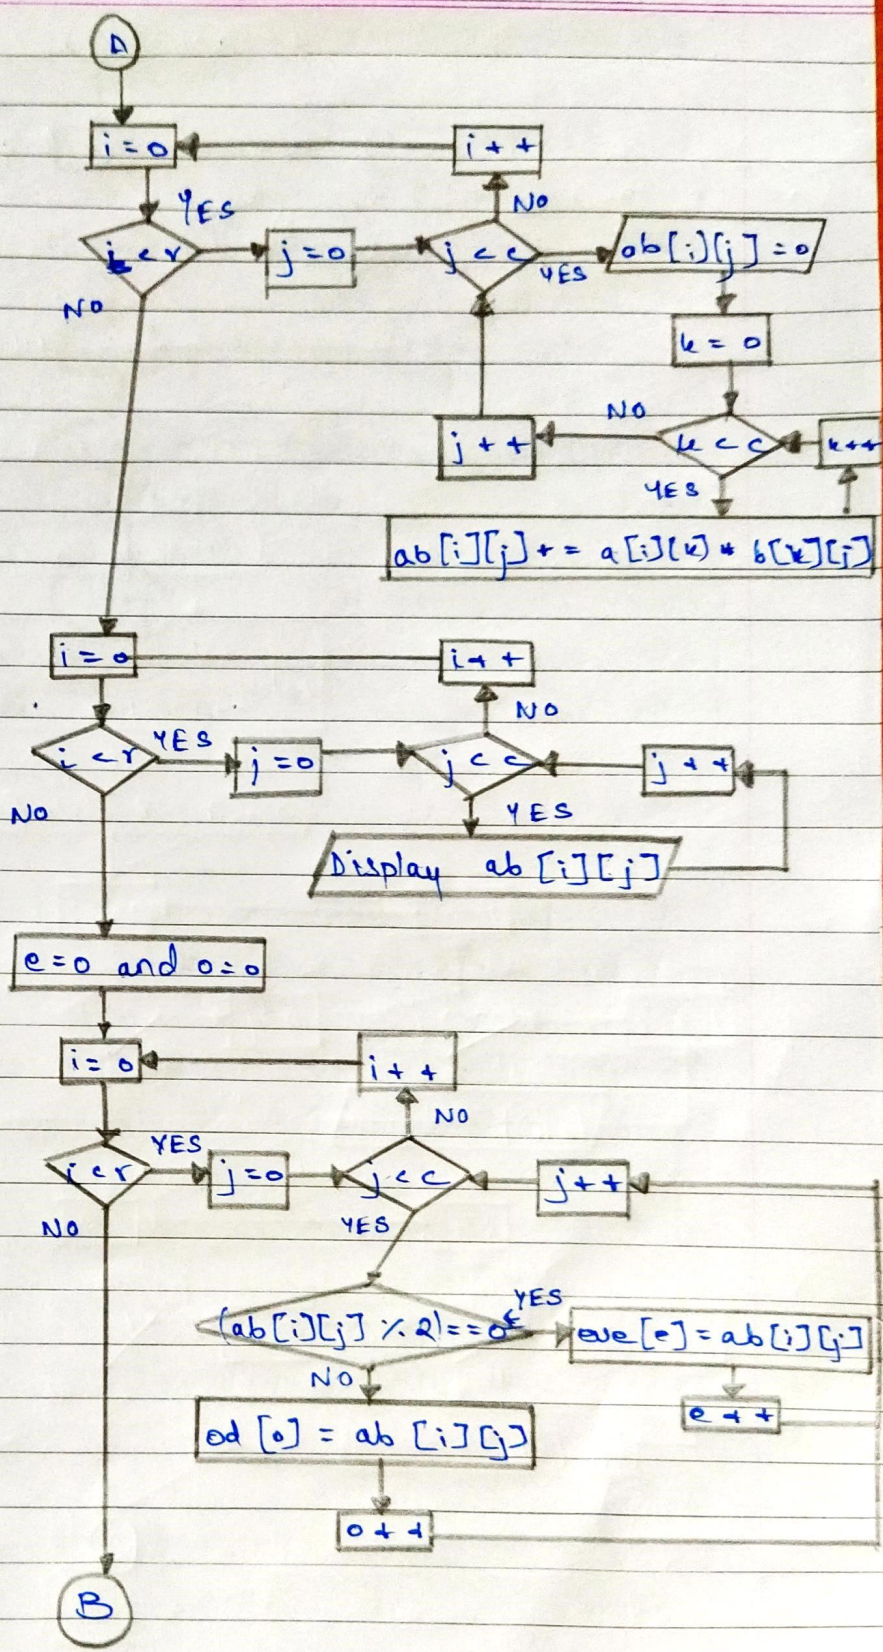 A
i = 0
i + +
YES
NO
i < r
j = 0
j < c
YES
ab[i][j] = 0
NO
k = 0
NO
j + +
k < c
k++
YES
ab[i][j] + = a[i][k] * b[k][j]
i = 0
i + +
NO
YES
i < r
j = 0
j < c
j + +
NO
YES
Display ab [i][j]
e = 0 and o = 0
i = 0
i + +
NO
YES
i < r
j = 0
j < c
j + +
NO
YES
YES
(ab[i][j] % 2) == 0
eve[e] = ab[i][j]
NO
e + +
od [o] = ab [i][j]
o + +
B